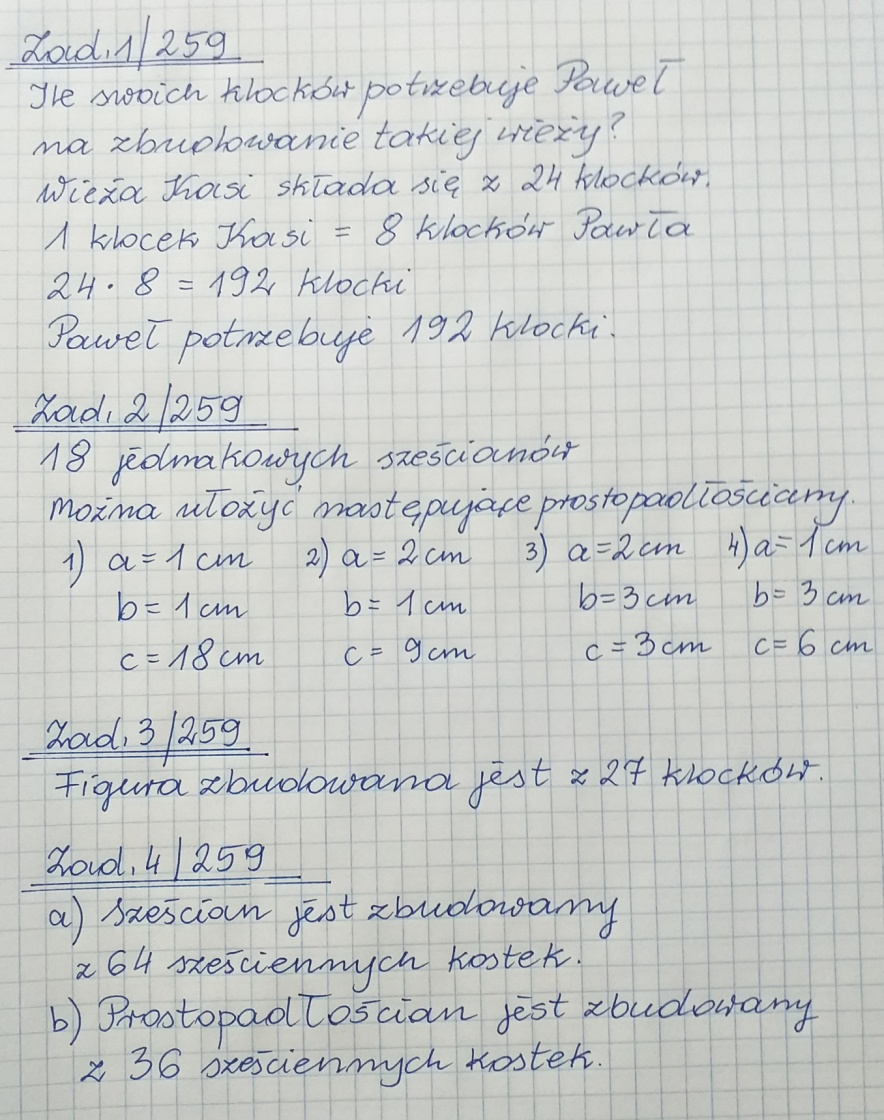 Zad. 1/259
Ile swoich klocków potrzebuje Paweł
na zbudowanie takiej wieży?
Wieża Kasi składa się z 24 klocków.
1 klocek Kasi = 8 klocków Pawła
24 · 8 = 192 klocki
Paweł potrzebuje 192 klocki.
Zad. 2/259
18 jednakowych sześcianów
można ułożyć następujące prostopadłościany.
1) a = 1 cm 2) a = 2 cm 3) a = 2 cm 4) a = 1 cm
b = 1 cm b = 1 cm b = 3 cm b = 3 cm
c = 18 cm c = 9 cm c = 3 cm c = 6 cm
Zad. 3/259
Figura zbudowana jest z 27 klocków.
Zad. 4/259
a) Sześcian jest zbudowany
z 64 sześciennych kostek.
b) Prostopadłościan jest zbudowany
z 36 sześciennych kostek.